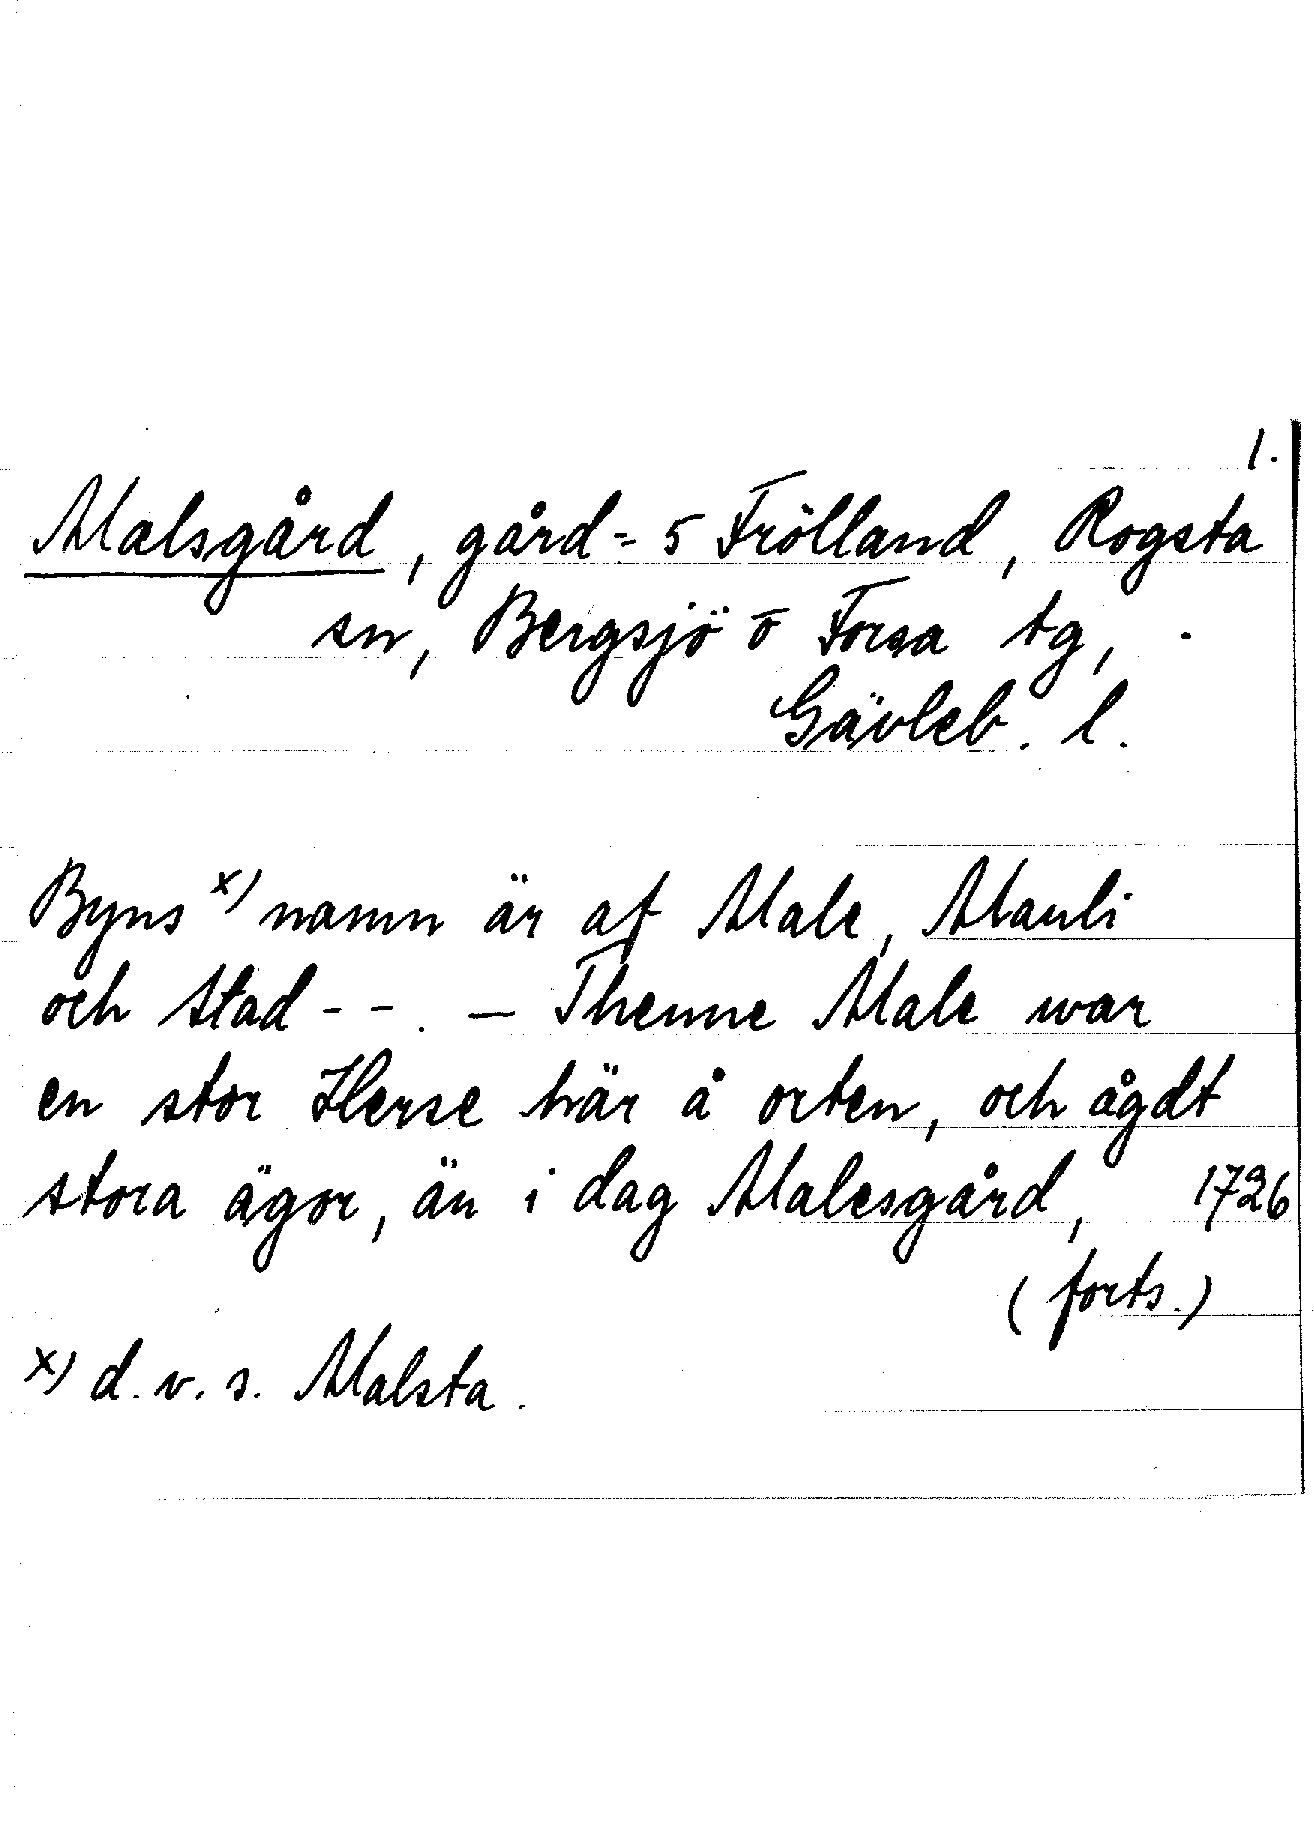 1.
Malsgård, gård = 5 Frölland, Rogsta
sn, Bergsjö o Forsa tg,
Gävleb. l.
Byns x) namn är af Male, Mauli
och Stad - - . — Thenne Male war
en stor Herse här å orten, och ågdt
stora ägor, än i dag Malesgård, 1726
(forts.)
x) d.v.s. Malsta.